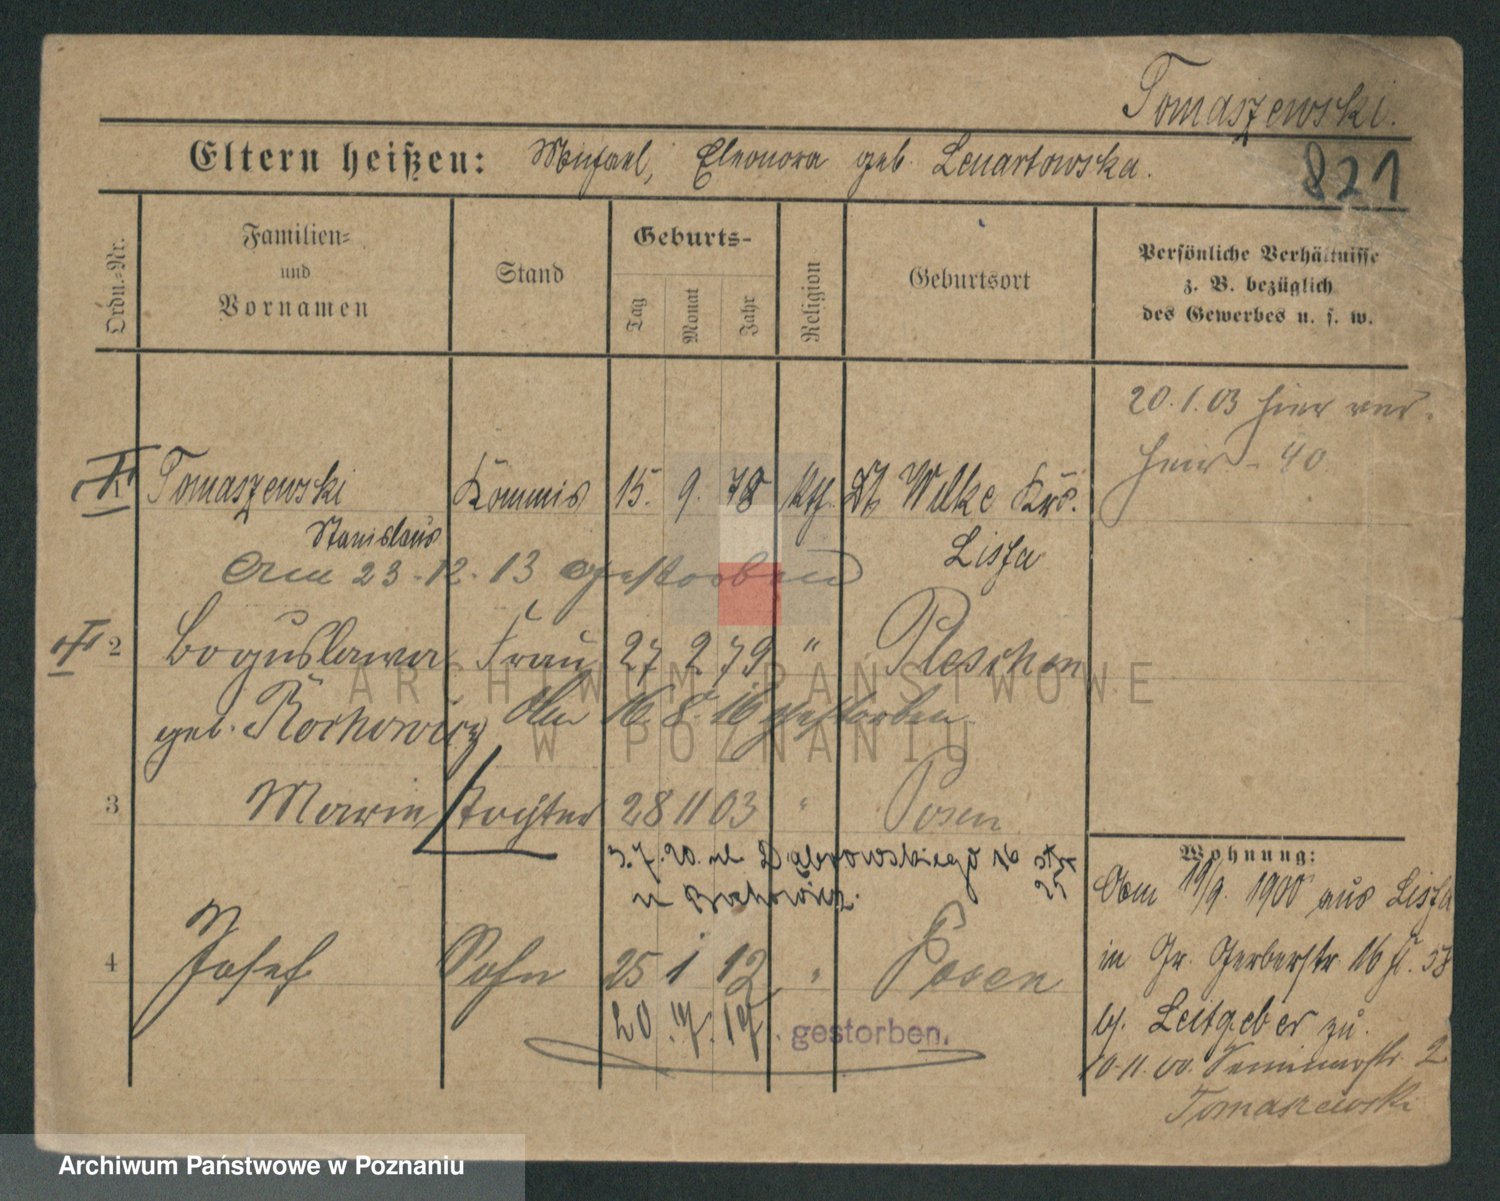 Tomaszewski.
821
Eltern heißen: Michael, Eleonora geb. Lenartowska.
Ordn.-Nr.
Familien-
und
Vornamen
Stand
Geburts-
Tag
Monat
Jahr
Religion
Geburtsort
Persönliche Verhältnisse
z. B. bezüglich
des Gewerbes u. s. w.
20.1.03 hier ver-
heir - 40
1 Tomaszewski Kommis 15. 9. 78 kth. Dt Wilke Krs.
Stanislaus Lissa
Am 23.12.13 gestorben
2 Boguslawa Frau 27 2 79 " Pleschen
geb. Rochowicz Am 16.8.16 gestorben
3 Marie Tochter 28 11 03 " Posen
3.7.20. ul Dąbrowskiego 16
u
4 Josef Sohn 25 1 12 " Posen
20. 17. gestorben.
Wohnung:
Vom 19/9. 1900 aus Lissa
in Gr. Gerberstr. 16
b. Leitgeber zu.
10.11.00. 2
Tomaszewski
ARCHIWUM PAŃSTWOWE
W POZNANIU
Archiwum Państwowe w Poznaniu